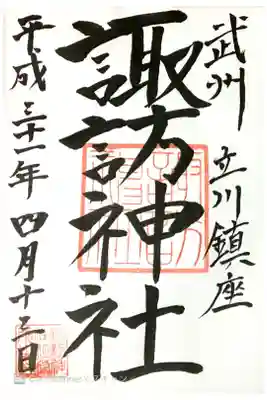 武州 立川鎮座
諏訪神社
平成三十一年四月十三日